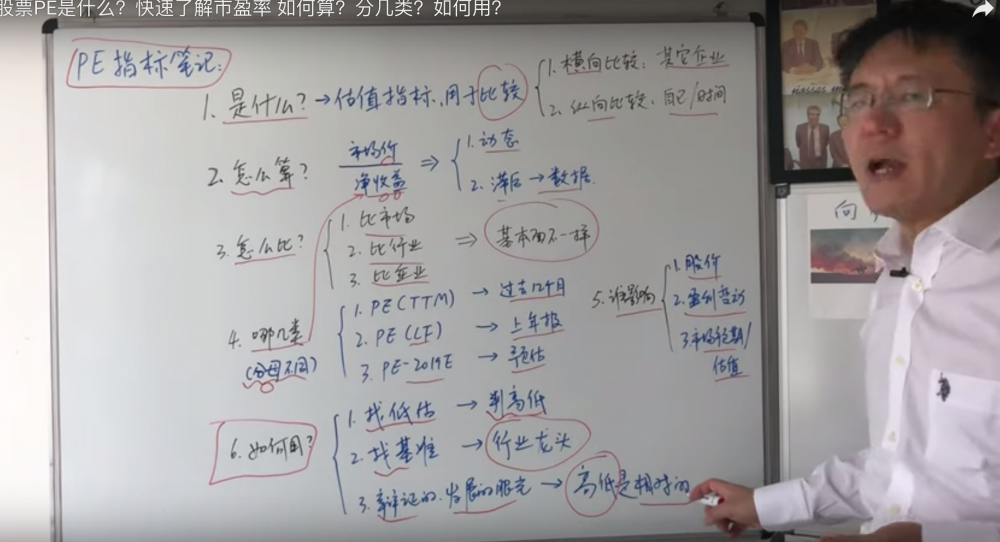 股票PE是什么？快速了解市盈率 如何算？分几类？如何用？
PE 指标笔记：
1. 是什么？→估值指标、用于比较
1. 横向比较：其它企业
2. 纵向比较、自己/时间
2. 怎么算？ 市场价
净收益
⇒
1. 动态
2. 滞后→数据.
3. 怎么比？
1. 比市场
2. 比行业
3. 比企业
⇒ 基本面不一样
4. 哪几类
(分母不同)
1. PE(TTM) → 过去12个月
2. PE (LF) → 上年报
3. PE-2019E → 预估
5. 谁影响
1. 股价
2. 盈利变动
3. 市场预期/
估值
6. 如何用？
1. 找低估 → 判高低
2. 找基准 → 行业龙头
3. 辩证的、发展的眼光 → 高低是相对的
向